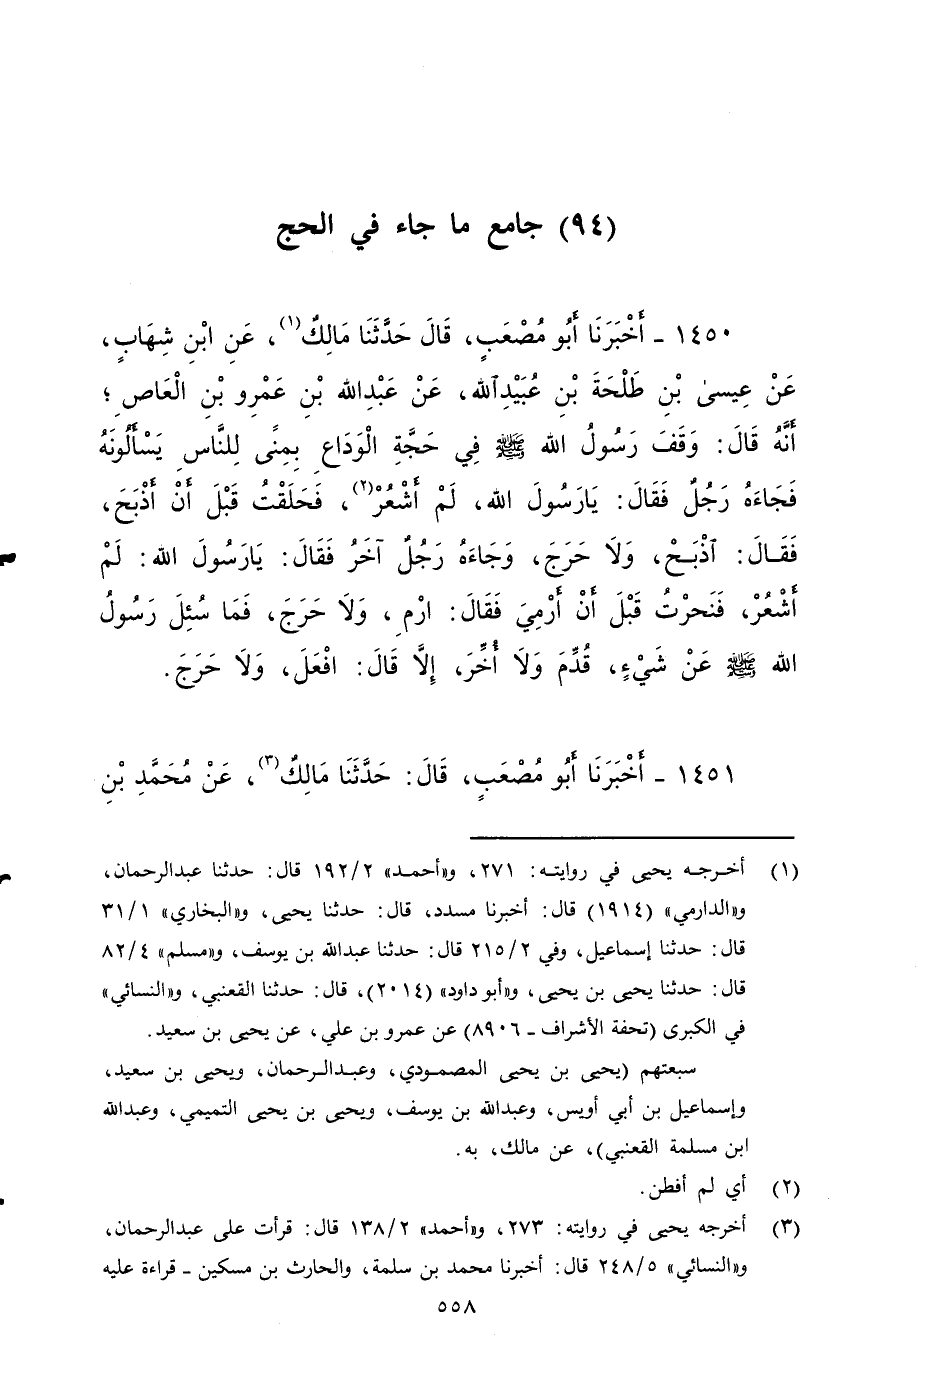 (٩٤) جامع ما جاء في الحج
١٤٥٠ ـ أَخْبَرَنَا أَبُو مُصْعَبٍ، قَالَ حَدَّثَنَا مَالِكٌ(١)، عَنِ ابْنِ شِهَابٍ،
عَنْ عِيسىٰ بْنِ طَلْحَةَ بْنِ عُبَيْدِٱلله، عَنْ عَبْدِالله بْنِ عَمْرِو بْنِ الْعَاصِ؛
أَنَّهُ قَالَ: وَقَفَ رَسُولُ الله ﷺ فِي حَجَّةِ الْوَدَاعِ بِمِنًى لِلنَّاسِ يَسْأَلُونَهُ
فَجَاءَهُ رَجُلٌ فَقَالَ: يَارَسُولَ الله، لَمْ أَشْعُرْ(٢)، فَحَلَقْتُ قَبْلَ أَنْ أَذْبَحَ،
فَقَالَ: ٱذْبَحْ، وَلَا حَرَجَ، وَجَاءَهُ رَجُلٌ آخَرُ فَقَالَ: يَارَسُولَ الله: لَمْ
أَشْعُرْ، فَنَحرْتُ قَبْلَ أَنْ أَرْمِيَ فَقَالَ: ارْمِ، وَلَا حَرَجَ، فَمَا سُئِلَ رَسُولُ
الله ﷺ عَنْ شَيْءٍ، قُدِّمَ وَلَا أُخِّرَ، إِلَّا قَالَ: افْعَلَ، وَلَا حَرَجَ.
١٤٥١ ـ أَخْبَرَنَا أَبُو مُصْعَبٍ، قَالَ: حَدَّثَنَا مَالِكٌ(٣)، عَنْ مُحَمَّدِ بْنِ
(١) أخرجه يحيى في روايته: ٢٧١، و«أحمد» ١٩٢/٢ قال: حدثنا عبدالرحمان،
و«الدارمي» (١٩١٤) قال: أخبرنا مسدد، قال: حدثنا يحيى، و«البخاري» ٣١/١
قال: حدثنا إسماعيل، وفي ٢١٥/٢ قال: حدثنا عبدالله بن يوسف، و«مسلم» ٨٢/٤
قال: حدثنا يحيى بن يحيى، و«أبو داود» (٢٠١٤)، قال: حدثنا القعنبي، و«النسائي»
في الكبرى (تحفة الأشراف ـ ٨٩٠٦) عن عمرو بن علي، عن يحيى بن سعيد.
سبعتهم (يحيى بن يحيى المصمودي، وعبدالرحمان، ويحيى بن سعيد،
وإسماعيل بن أبي أويس، وعبدالله بن يوسف، ويحيى بن يحيى التميمي، وعبدالله
ابن مسلمة القعنبي)، عن مالك، به.
(٢) أي لم أفطن.
(٣) أخرجه يحيى في روايته: ٢٧٣، و«أحمد» ١٣٨/٢ قال: قرأت على عبدالرحمان،
و«النسائي» ٢٤٨/٥ قال: أخبرنا محمد بن سلمة، والحارث بن مسكين ـ قراءة عليه
٥٥٨